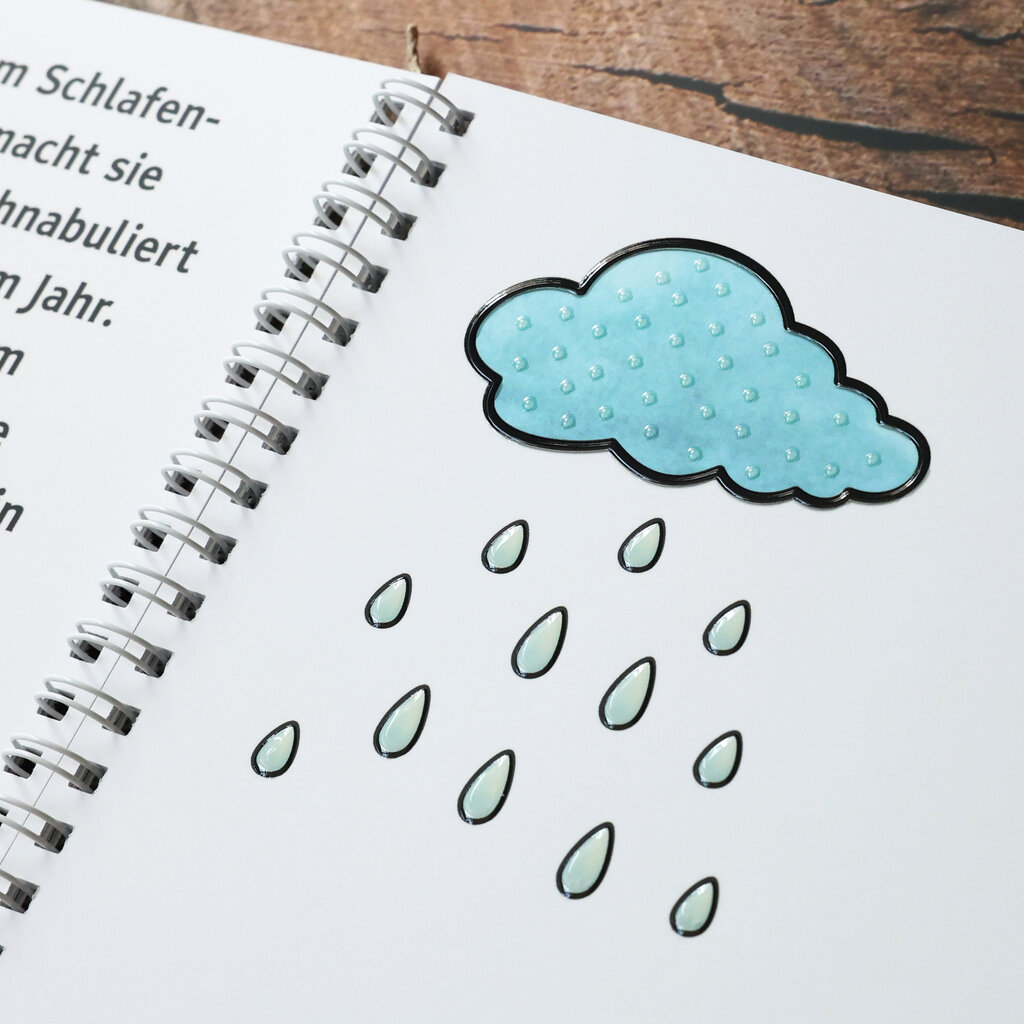 m Schlafen-
macht sie
hnabuliert
m Jahr.
m
e
in